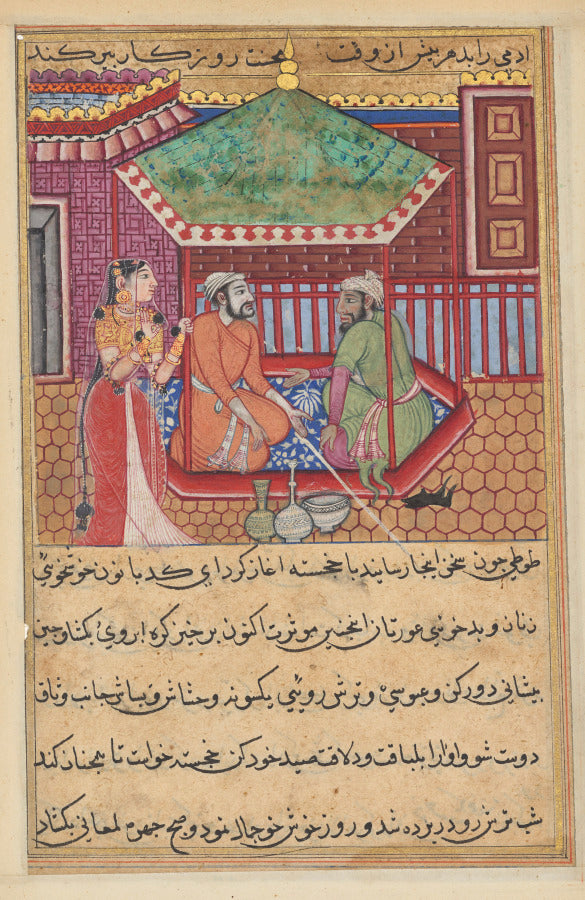 ادمی را بدهر پیش از وقت محنت روز کار پیر کند
طوطی چون سخن اینجا رسانید با خجسته اغاز کرد ای کدبانو خوشخویی
زنان و بدخویی عورتان انجنین موثرست اکنون برخیز کره ابروی بکشا و چین
پیشانی دور کن و عبوسی و ترش رویی یکسو نه و بشاش جانب وثاق
دوست شو و او را بلباقت و دلاقت صید خود کن خجسته خواست تا همچنان کند
شب ترش رو در پرده شد و روز خوش خو جمال نمود و صبح چهره لمعانی بکشاد